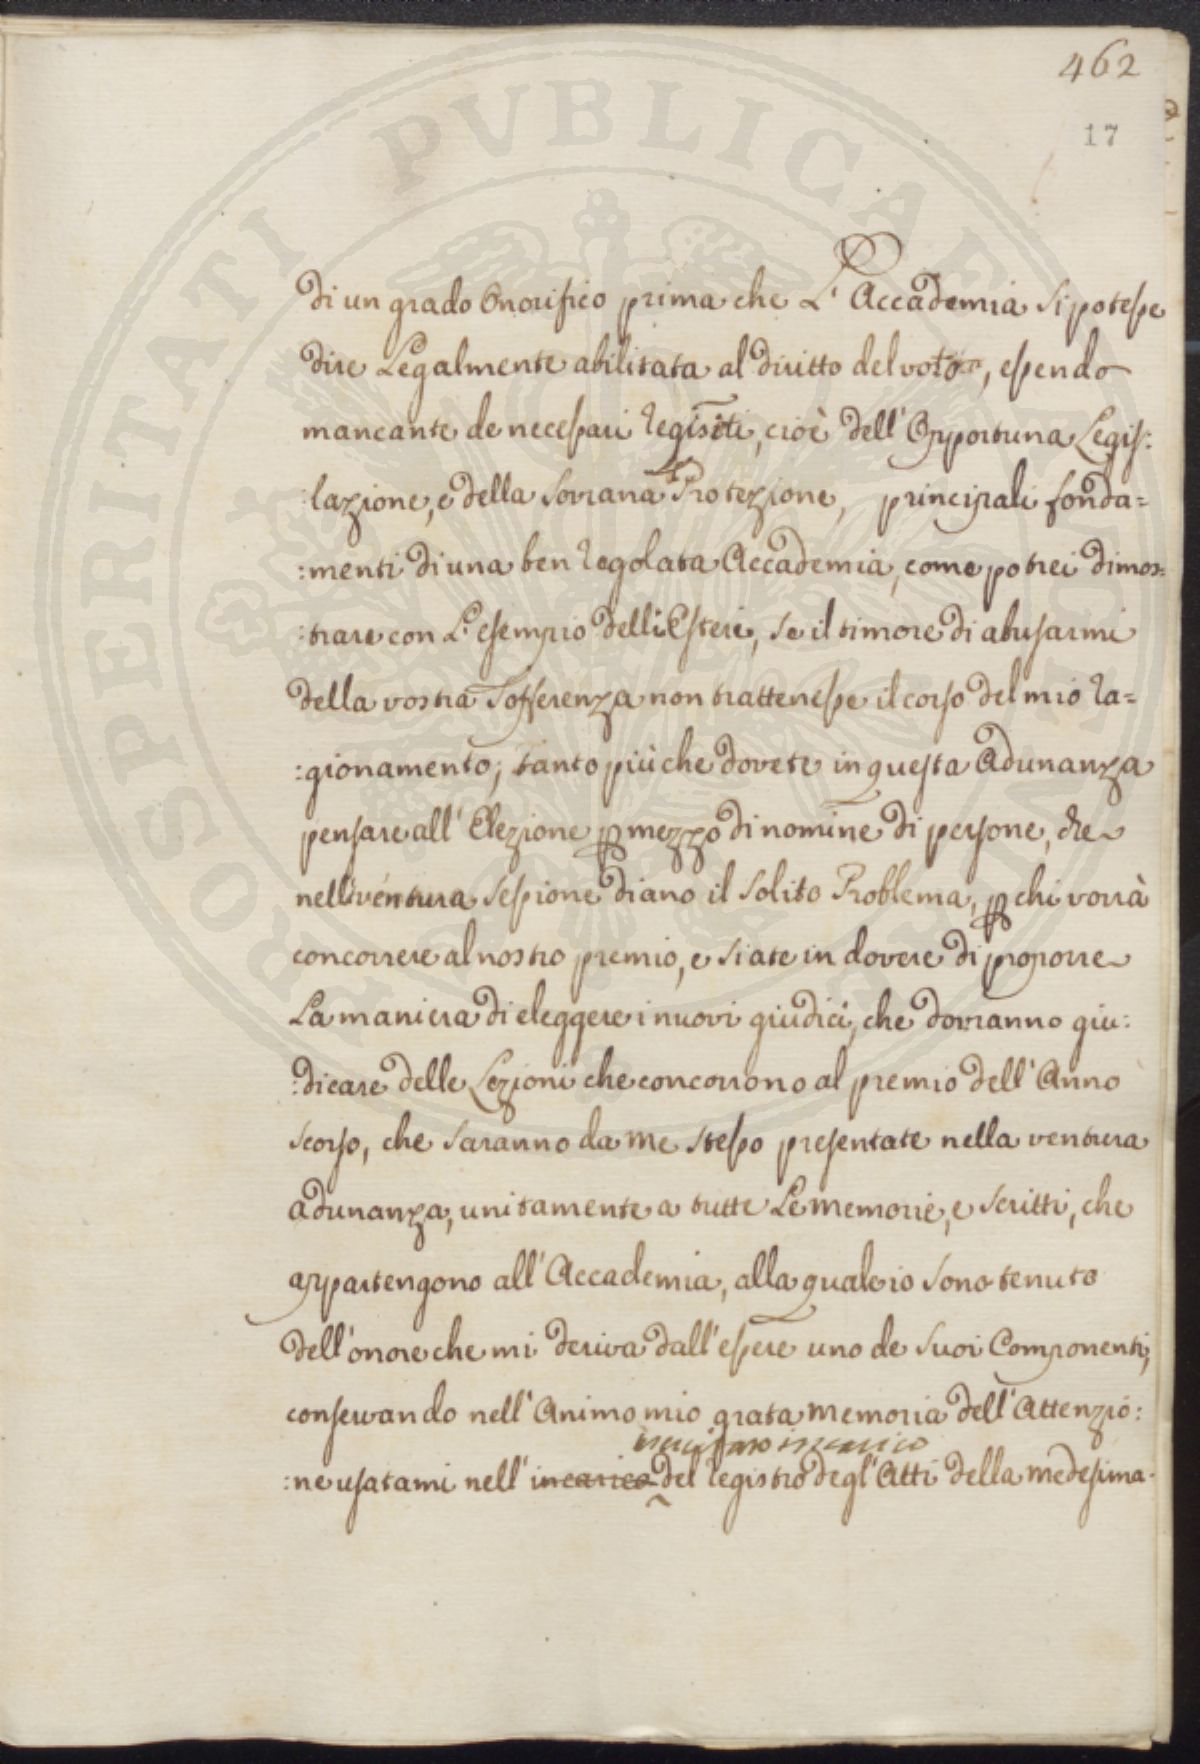 462
17
di un grado Onorifico prima che L' Accademia si potesse
dire Legalmente abilitata al diritto del voto, essendo
mancante de necessari regisiti, cioè dell' Opportuna Legis:
:lazione, e della Sovrana Protezione, principali fonda=
:menti di una ben regolata Accademia, come potrei dimos:
:trare con L' esempio delli Esteri, se il timore di abusarmi
della vostra Sofferenza non trattenesse il corso del mio ra=
:gionamento; tanto più che dovete in questa Adunanza
pensare all' Elezione p mezzo di nomine di persone, che
nell ventura Sessione diano il solito Problema, p chi vorrà
concorrere al nostro premio, e siate in dovere di proporre
La maniera di eleggere i nuovi giudici, che dovranno giu:
:dicare delle Lezioni che concorrono al premio dell' Anno
scorso, che saranno da me stesso presentate nella ventura
adunanza, unitamente a tutte Le memorie, e scritti, che
appartengono all' Accademia, alla quale io sono tenuto
dell' onore che mi deriva dall' essere uno de Suoi Componenti,
conservando nell' Animo mio grata memoria dell' Attenzio:
incarico
:ne usatami nell' incarico del registro degl' Atti della medesima.
PROSPERITATI PUBLICAE